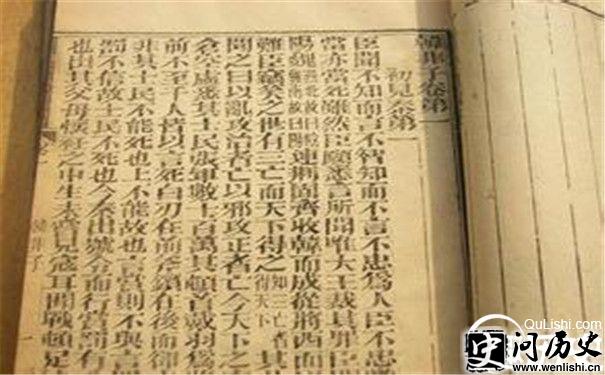 韓非子卷第一
初見秦第一
臣聞不知而言不智知而不言不忠為人臣不忠
當亦當死雖然臣願悉言所聞唯大王裁其罪臣聞
陽魏燕北故曰陰魏南故曰陽連荊固齊收韓而成從將西面
難臣竊笑之世有三亡而天下得之知三亡者得天下其
聞之曰以亂攻治者亡以邪攻正者亡今天下之
倉空虛悉其士民張軍數十百萬其頓首戴羽為
前不至千人皆以言死白刃在前斧鑕在後而卻
非其士民不能死也上不能故也言賞則不與言
罰不信故士民不死也今秦出號令而行賞罰有
也出其父母懷衽之中生未嘗見寇耳聞戰頓足
韓非子
QuLishi.com
问历史
www.wenlishi.cn